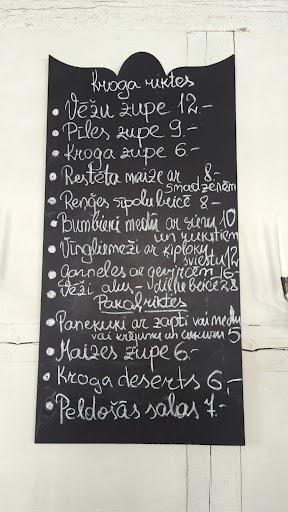 Kroga riktes
Vēžu zupe 12.-
Pīles zupe 9.-
Kroga zupe 6.-
Resteta maize ar 8.-
smadzeņēm
Reņģes sīpolu beicē 8-
Bumbieri medū ar sieru 10
un rukutiem
Vīngliemeži ar ķiploku
sviestu 12
garneles ar gevircēm 16-
Vēži alus - diļļu beicē 28
Pakaļriktes
Pankuki ar zapti vai medu
vai krējumu un cukuru 5
Maizes zupe 6.-
Kroga deserts 6,-
Peldošās salas 7.-